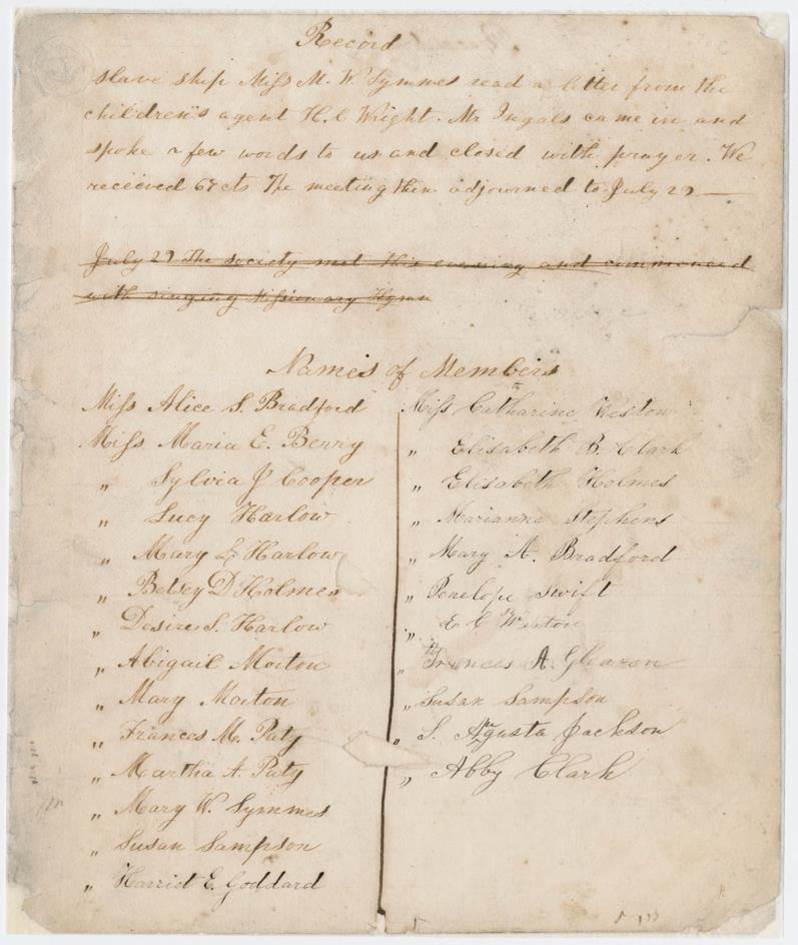 Record
slave ship Miss M. W. Symmes read a letter from the
children's agent H. C Wright. Mr Ingals came in and
spoke a few words to us and closed with prayer. We
received 67 cts The meeting then adjourned to July 29
July 29 The society met this evening and commenced
with singing Missionary Hymn
Names of Members
Miss Alice S. Bradford
Miss Maria E. Berry
" Sylvia J Cooper
" Lucy Harlow
" Mary L. Harlow
" Betsey D Holmes
" Desire S. Harlow
" Abigail Morton
" Mary Morton
" Frances M. Paty
" Martha A. Paty
" Mary W. Symmes
" Susan Sampson
" Harriet E. Goddard
Miss Catharine Weston
" Elisabeth B. Clark
" Elisabeth Holmes
" Marianne Stephens
" Mary A. Bradford
" Penelope Swift
" E C Weston
" Frances A. Gleason
" Susan Sampson
" S. Agusta Jackson
" Abby Clark